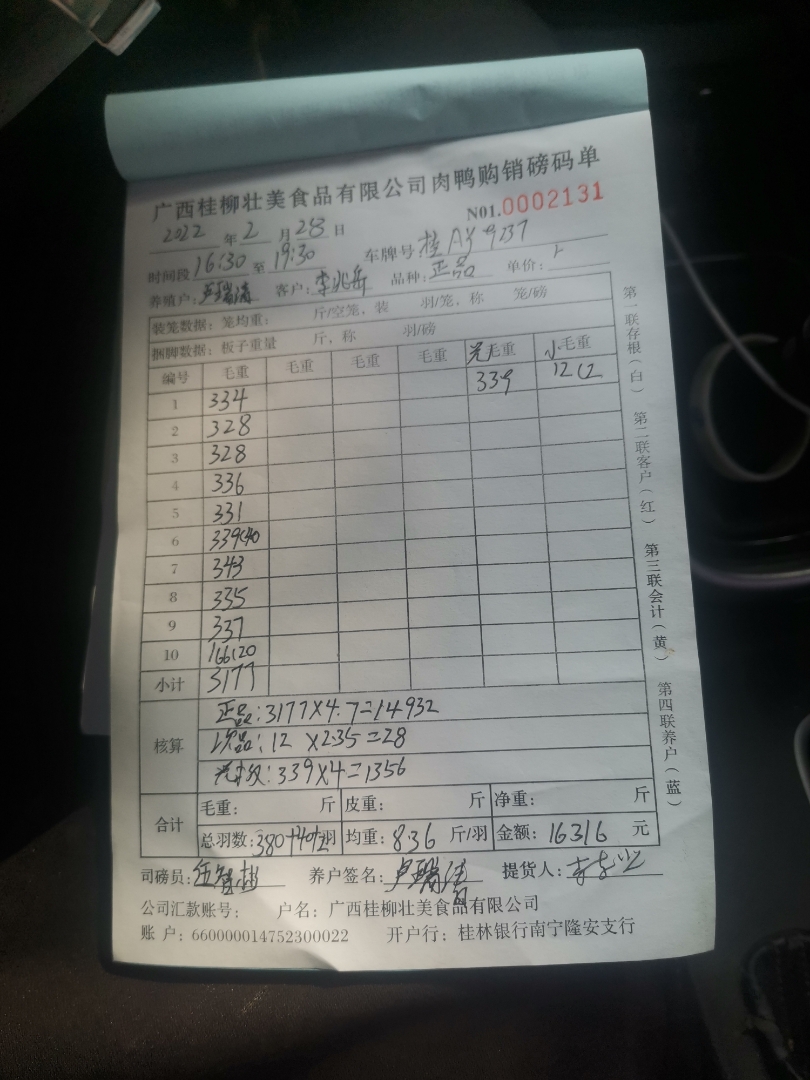 广西桂柳壮美食品有限公司肉鸭购销磅码单
N01.0002131
2022 年 2 月 28 日
时间段 16:30 至 19:30 车牌号: 桂AY9237
养殖户: 卢瑞清 客户: 李兆岳 品种: 正品 单价:
装笼数据: 笼均重: 斤/空笼, 装 羽/笼, 称 笼/磅
捆脚数据: 板子重量 斤, 称 羽/磅
编号 毛重 毛重 毛重 毛重 毛重 小毛重
1 334 339 12(2
2 328
3 328
4 336
5 331
6 339(40
7 343
8 335
9 337
10 166(20
小计 3177
核算
正品: 3177X4.7=14932
次品: 12 X2.35=28
339X4=1356
合计
毛重: 斤 皮重: 斤 净重: 斤
总羽数: 380+40/2羽 均重: 8.36 斤/羽 金额: 16316 元
司磅员: 养户签名: 卢瑞清 提货人:
公司汇款账号: 户名: 广西桂柳壮美食品有限公司
账 户: 660000014752300022 开户行: 桂林银行南宁隆安支行
第一联存根(白) 第二联客户(红) 第三联会计(黄) 第四联养户(蓝)